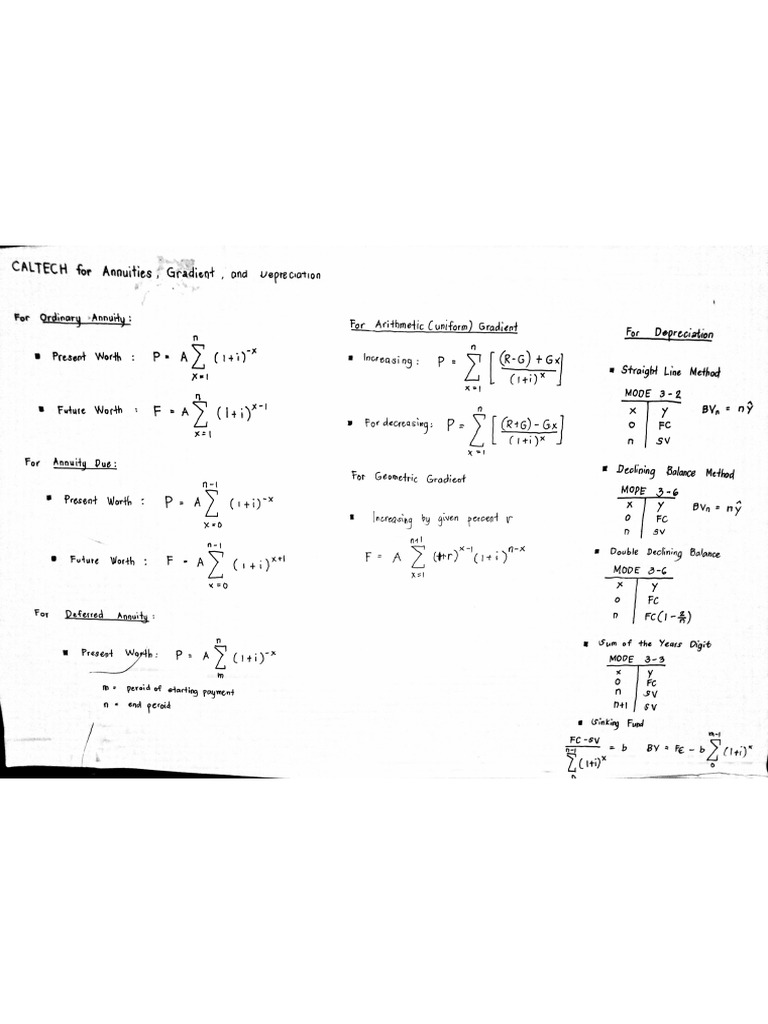 CALTECH for Annuities, Gradient, and Depreciation
For Ordinary Annuity:
▪ Present Worth : P = A ∑_{x=1}^{n} (1+i)^{-x}
▪ Future Worth : F = A ∑_{x=1}^{n} (1+i)^{x-1}
For Annuity Due:
▪ Present Worth : P = A ∑_{x=0}^{n-1} (1+i)^{-x}
▪ Future Worth : F = A ∑_{x=0}^{n-1} (1+i)^{x+1}
For Deferred Annuity:
▪ Present Worth: P = A ∑_{m}^{n} (1+i)^{-x}
m = peroid of starting payment
n = end peroid
For Arithmetic (uniform) Gradient
▪ Increasing: P = ∑_{x=1}^{n} [((R-G)+Gx)/(1+i)^x]
▪ For decreasing: P = ∑_{x=1}^{n} [((R+G)-Gx)/(1+i)^x]
For Geometric Gradient
▪ Increasing by given percent r
F = A ∑_{x=1}^{n+1} (1+r)^{x-1} (1+i)^{n-x}
For Depreciation
▪ Straight Line Method
MODE 3-2
x | y BVn = nŷ
0 | FC
n | SV
▪ Declining Balance Method
MODE 3-6
x | y BVn = nŷ
0 | FC
n | SV
▪ Double Declining Balance
MODE 3-6
x | y
0 | FC
n | FC(1-2/n)
▪ Sum of the Years Digit
MODE 3-3
x | y
0 | FC
n | SV
n+1 | SV
▪ Sinking Fund
(FC-SV)/(∑_{0}^{n-1} (1+i)^x) = b BV = FC - b ∑_{0}^{m-1} (1+i)^x